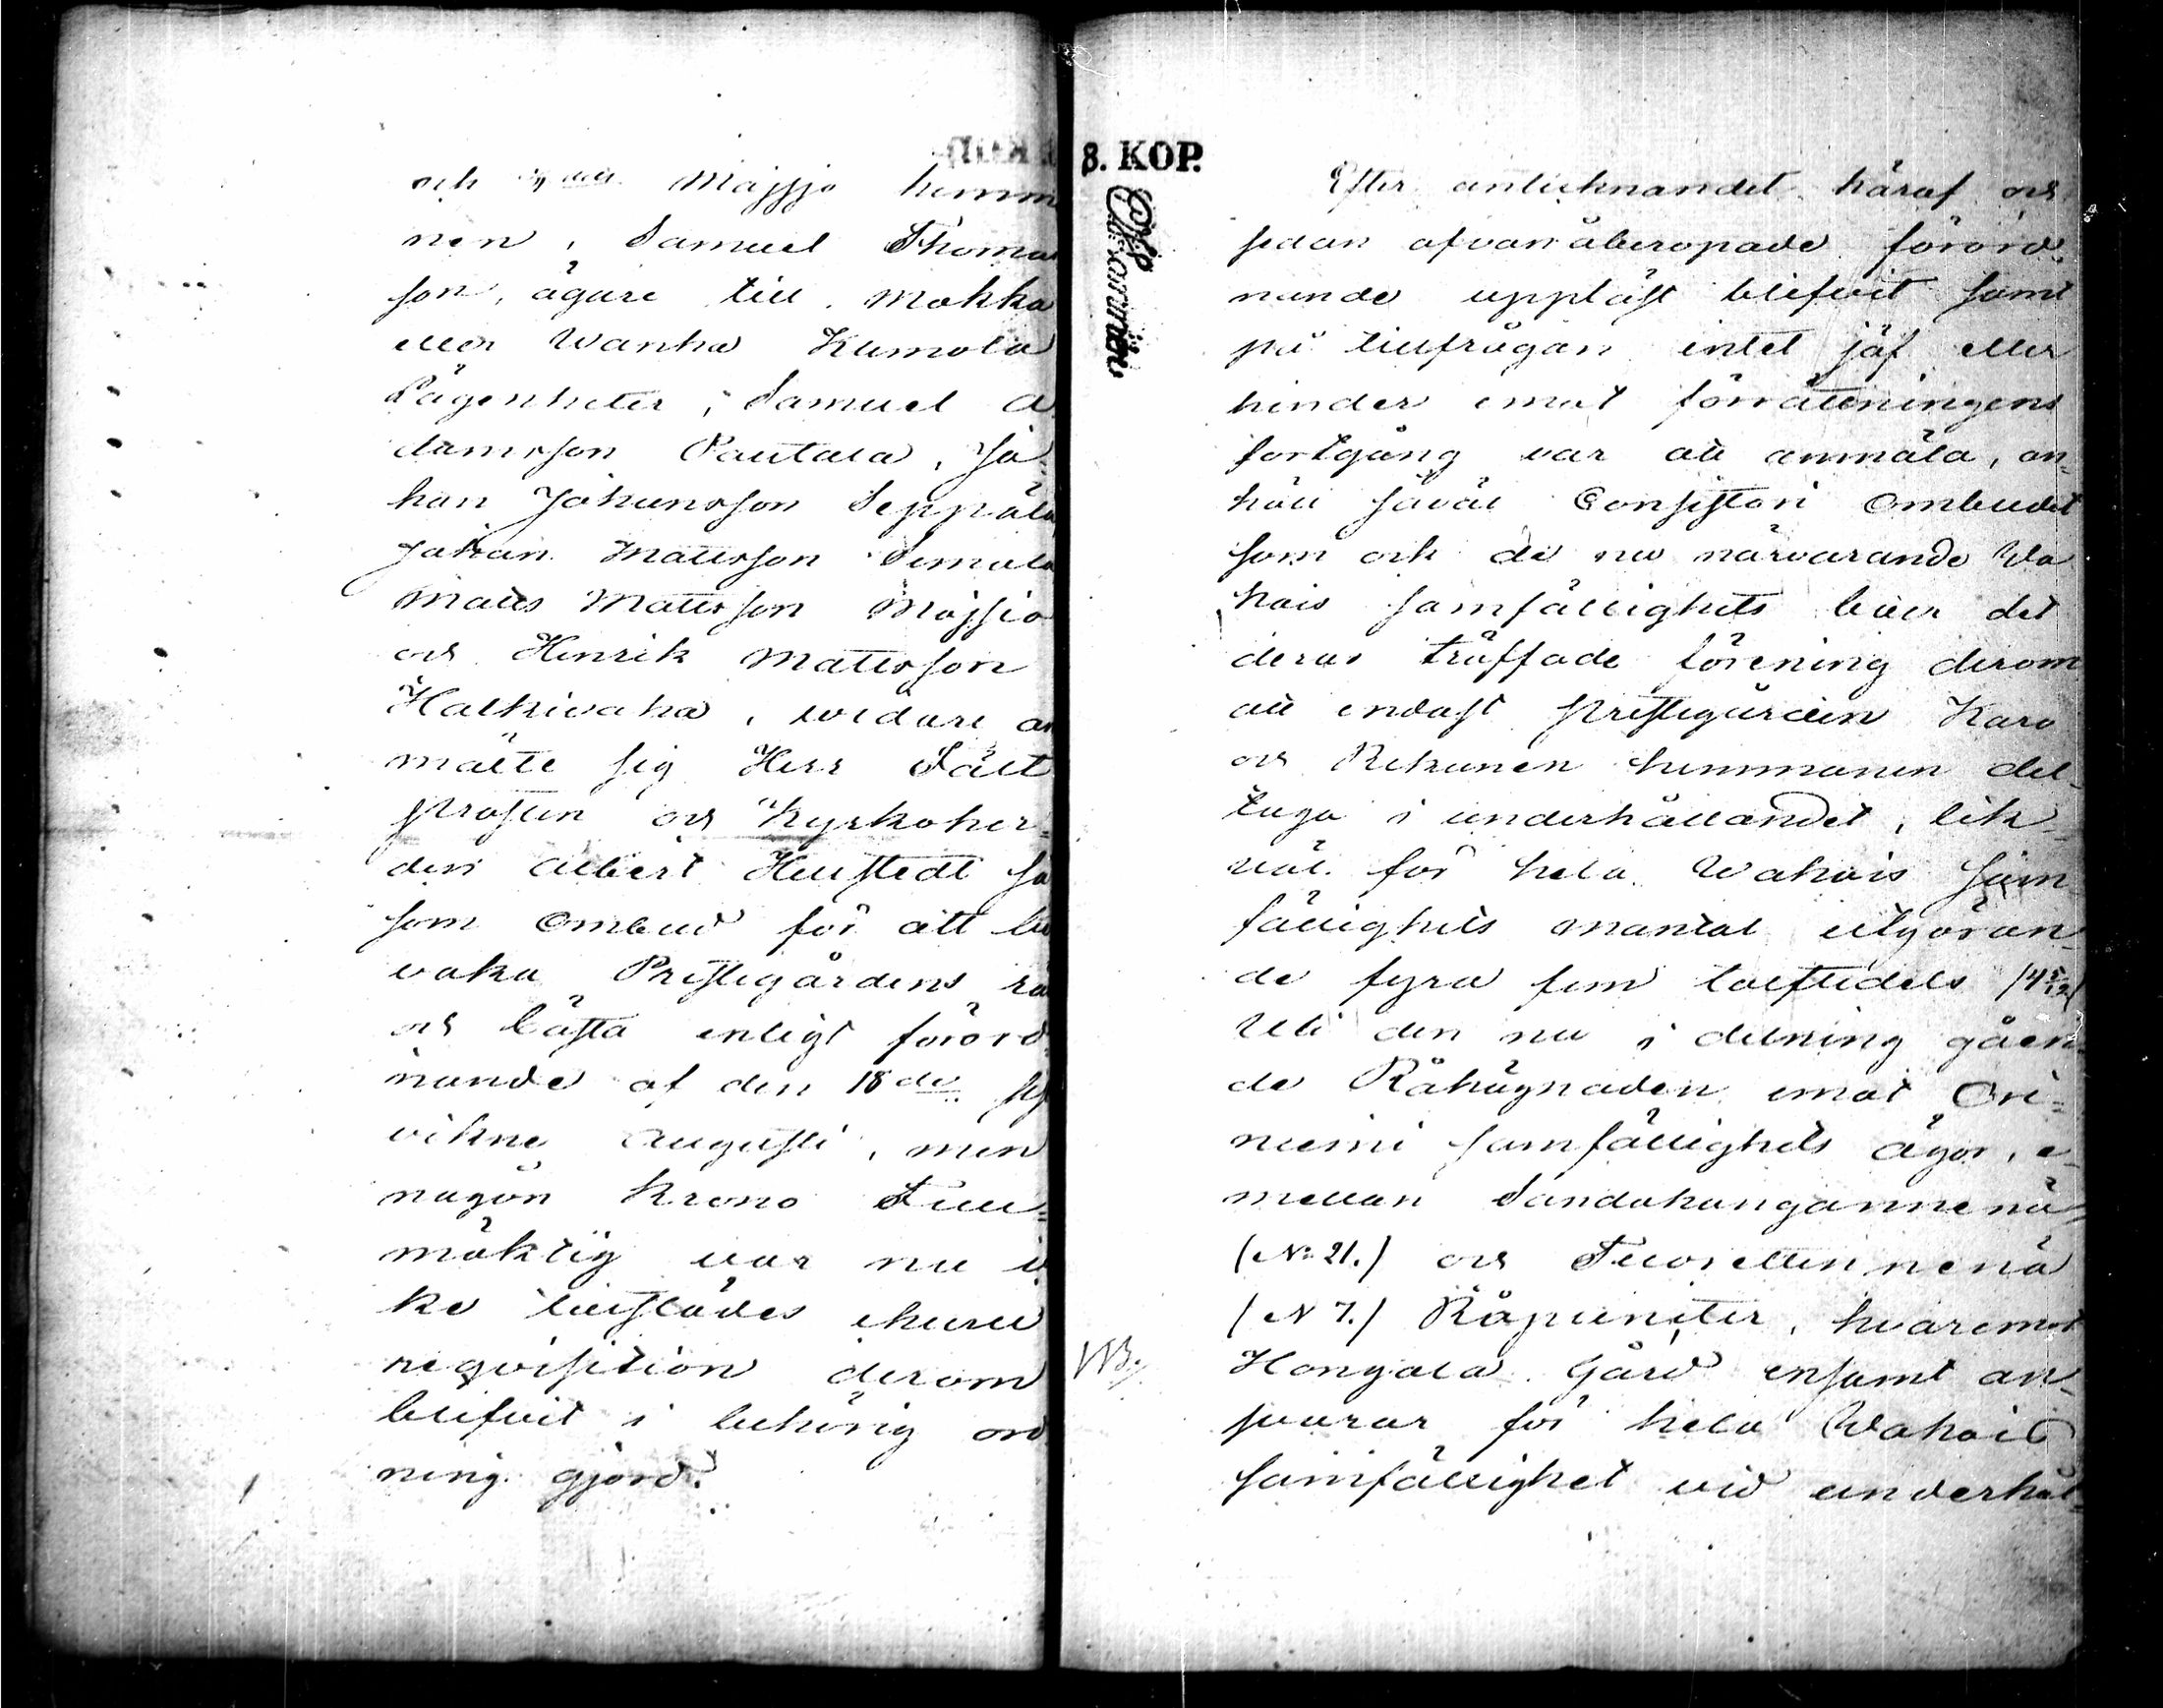 och Majsjo hemm
nen, Samuel Thomas
son, ägare till Mokka
eller Wanha Kumola
Lägenheter, Samuel A
damsson Pautala, Jo
han Johansson Seppälä
Johan Mattsson Simola
Matts Mattsson Majsio
och Henrik Mattsson
Halkivaha, widare an
mälte sig Herr Fält
prosten och Kyrkoher-
den Albert Heustedt så
som Ombud för att be
vaka Prestegårdens rä
och bästa enligt förord
nande af den 18de sis
vikne Augusti, men
någon Krono Full-
mäktig var nu ic
ke tillstädes ehuru
reqvisition derom
blifvit i behörig ord
ning gjord.
8. KOP.
Efter antecknandet häraf och
sedan ofvanåberopade förord-
nande uppläst blifvit samt
på tillfrågan intet jäf eller
hinder emot förrättningens
fortgång var att anmäla, an-
höll såväl Consistorii Ombudet
som och de nu närvarande Wa
hois samfällighets båer det
deras träffade förening derom
att endast prestegården Karo
och Rekunen hemmanen del-
taga i underhållandet, lik-
väl för hela Wahois sam
fällighets mantal utgöran-
de fyra fem tolftedels /4 5/12/
uti den nu i delning gåen-
de Råhägnaden emot Ori-
niemi samfällighets ägor, e-
mellan Sandakangannenä
(No 21.) och Tuorettinnenä
(N 7.) Råpuncter, hvaremot
NB.
Hongola Gård ensamt an-
svarar för hela Wahois
samfällighet vid underhål-